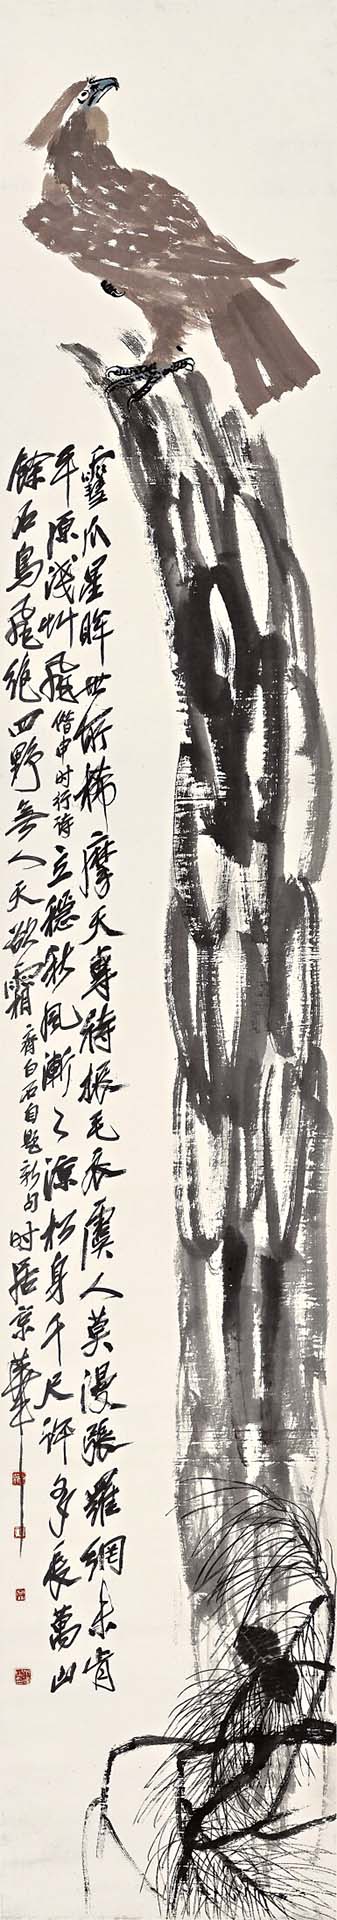 靈爪星眸世所稀摩天專待振毛衣虞人莫漫張羅網未肯
平原淺草飛借申时行诗立穩秋風漸々涼松身千尺許多長萬山
餘石鳥飛絶四野無人天欲霜齊白石自題新句时居京華